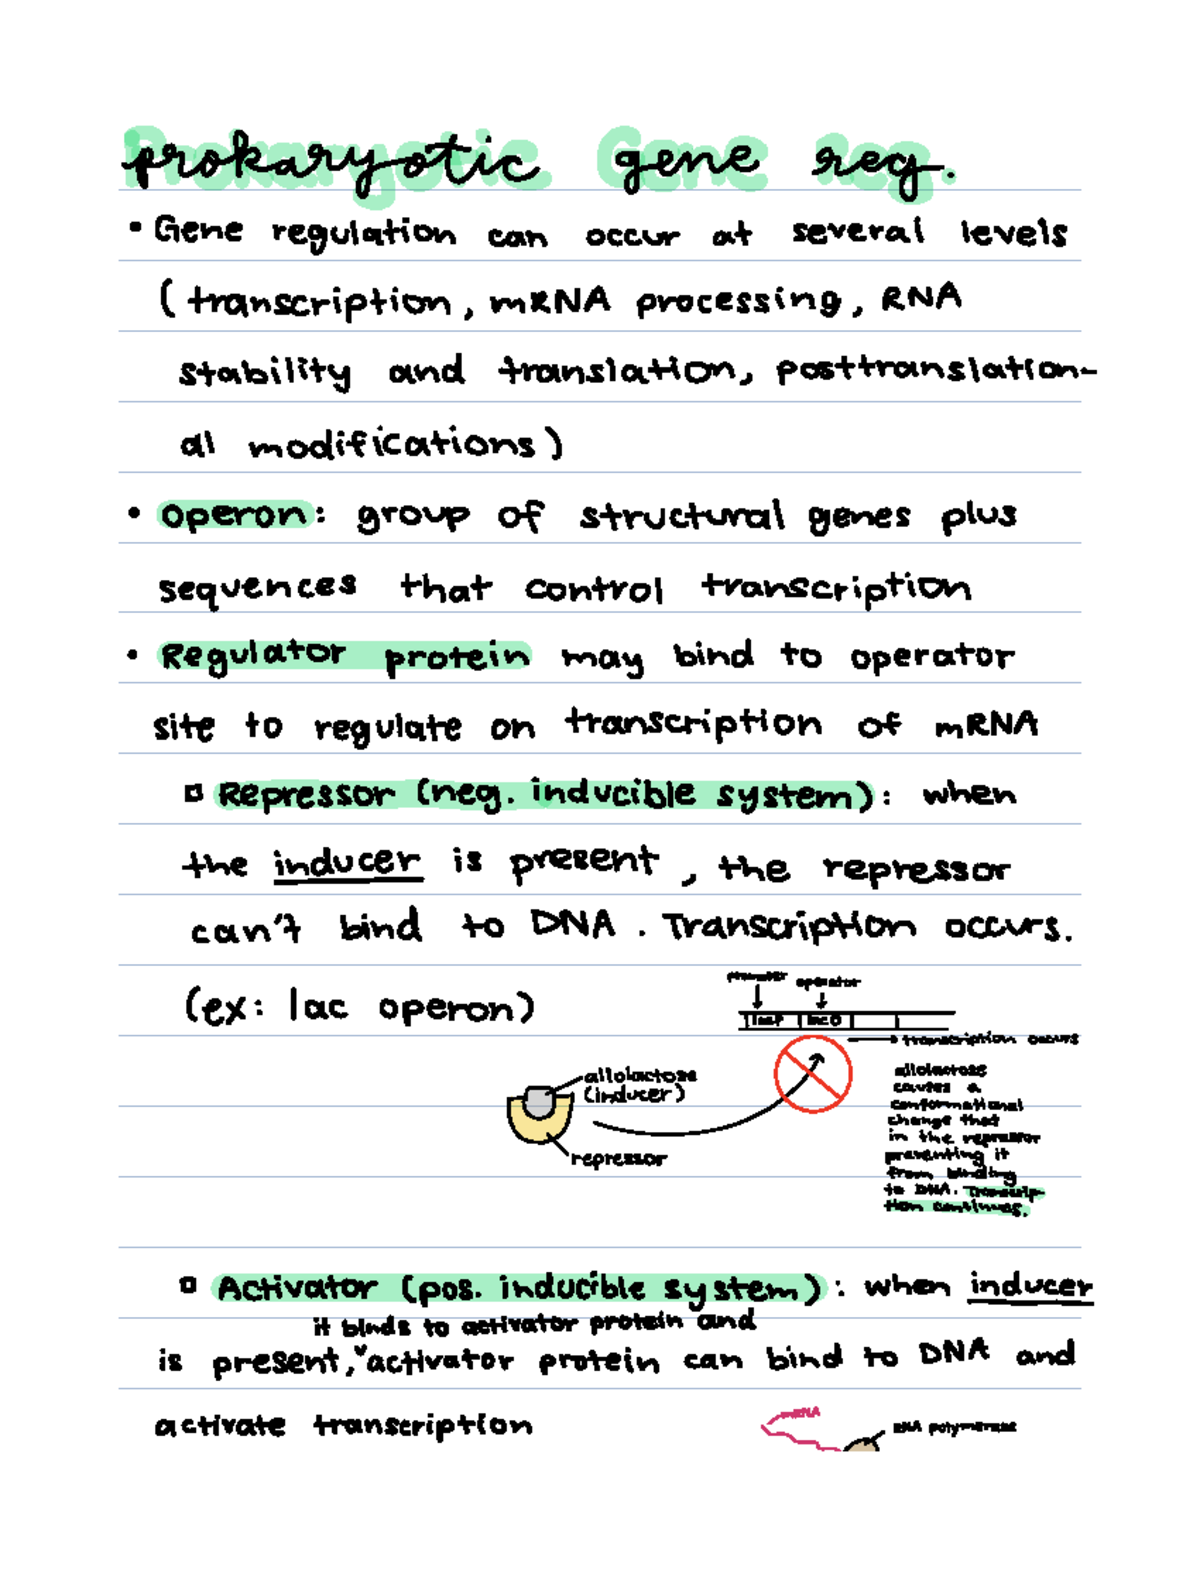 prokaryotic gene reg.
• Gene regulation can occur at several levels
(transcription, mRNA processing, RNA
stability and translation, posttranslation-
al modifications)
• operon: group of structural genes plus
sequences that control transcription
• Regulator protein may bind to operator
site to regulate on transcription of mRNA
▫ Repressor (neg. inducible system): when
the inducer is present, the repressor
can't bind to DNA. Transcription occurs.
(ex: lac operon)
promoter operator
lacP lacO
transcription occurs
allolactose
(inducer)
repressor
allolactose
causes a
conformational
change that
in the repressor
preventing it
from binding
to DNA. Transcrip-
tion continues.
▫ Activator (pos. inducible system): when inducer
it binds to activator protein and
is present, ˅activator protein can bind to DNA and
activate transcription
mRNA
RNA polymerase